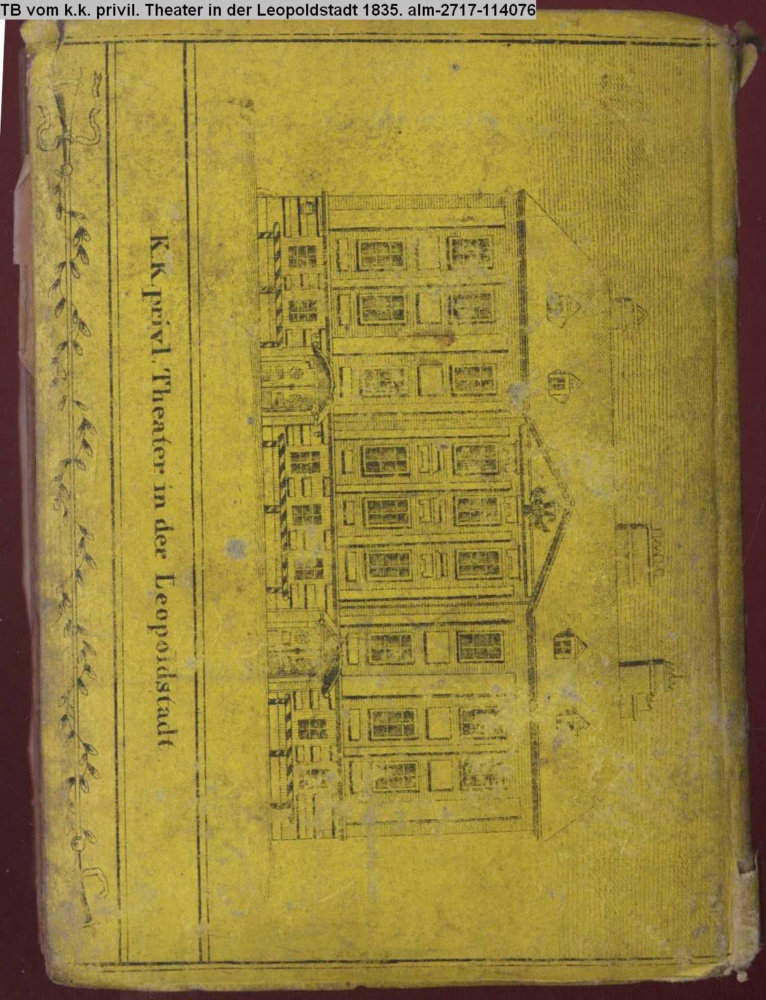 TB vom k.k. privil. Theater in der Leopoldstadt 1835. alm-2717-114076
K.K. privl. Theater in der Leopoldstadt